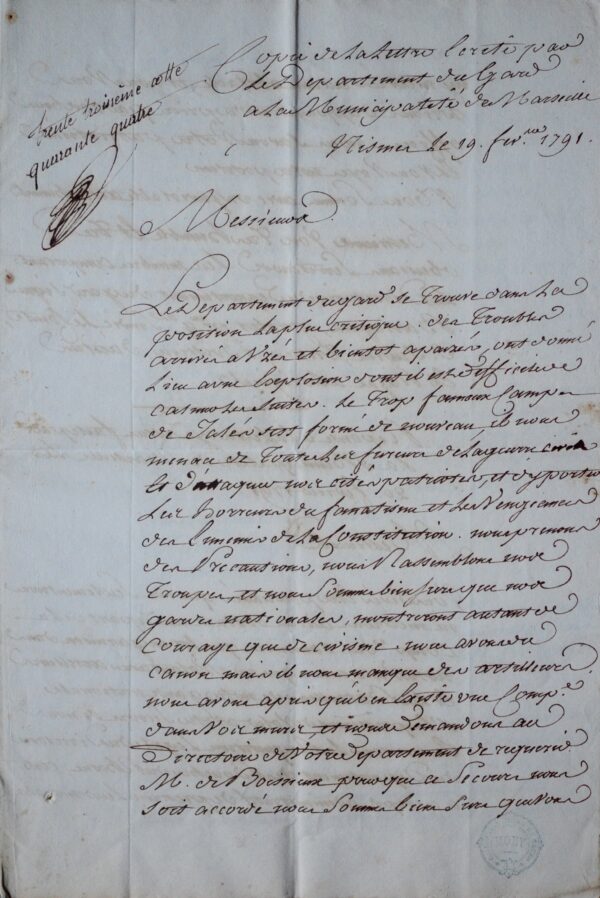 trente troisième cotte
quarante quatre
Copie de La Lettre Ecrite par
Le Departement du Gard
a La Municipalité de Marseille
Nismes Le 19. fev.er 1791.
Messieurs
Le Departement du gard se Trouve dans La
position La plus critique. des Troubles
arrivés a Uzés et bientot apaizés, ont donné
Lieu a une Explosion dont il est difficile de
calmer Les suites. Le Trop fameux Camp
de Jalés s'est formé de nouveau, il nous
menace de Toutes Les fureurs de La guerre civile
et d'attaquer nos cités patriotes, et d'y porter
Les horreurs du fanatisme et Les Vengeances
des Ennemis de La Constitution. nous prenons
des Précautions, nous Rassemblons nos
Troupes, et nous Sommes bien Surs que nos
gardes nationales, montreront autant de
Courage que de civisme. nous avons du
canon mais il nous manque des artilleurs.
nous avons apris qu'il en Existe une Comp.e
dans vos murs, et nous demandons au
Directoire de Votre Departement de requerir
M. de Boissieux pour que ce Secours nous
soit accordé nous Sommes bien Surs que vous